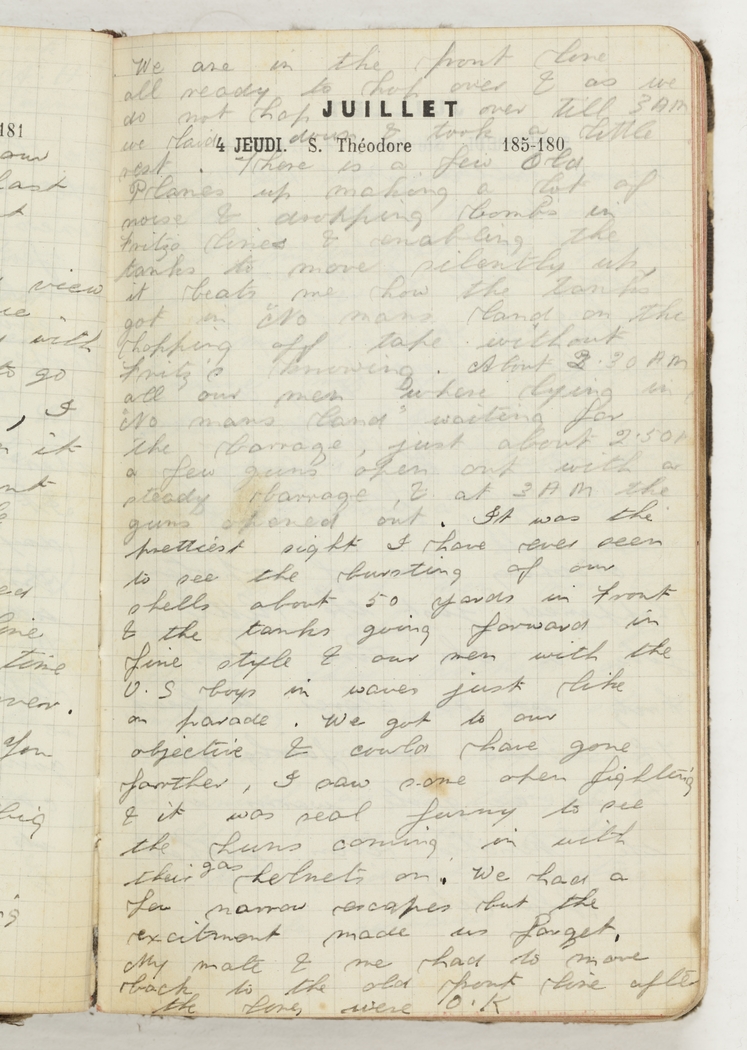 181
our
last
t
view
with
to go
, I
n it
line
time
over.
You
big
We are in the front line
all ready to hop over & as we
do not hop over till 3 AM
JUILLET
we laid down & took a little
4 JEUDI. S. Théodore 185-180
rest. There is a few Old
Planes up making a lot of
noise & dropping bombs in
Fritzs lines & enabling the
tanks to move silently up,
it beats me how the tanks
got in "No mans land on the
hopping off tape without
Fritz's knowing. About 2.30 AM
all our men where lying in
"No mans land" waiting for
the barrage, just about 2.50
a few guns open out with a
steady barrage, & at 3 AM the
guns opened out. It was the
prettiest sight I have ever seen
to see the bursting of our
shells about 50 yards in Front
& the tanks going forward in
fine style & our men with the
U.S boys in waves just like
on parade. We got to our
objective & could have gone
farther, I saw some open fighting
& it was real funny to see
the huns coming in with
their gas helmets on. We had a
few narrow escapes but the
excitment made us forget.
My mate & me had to move
back to the old front line after
the lines were O.K